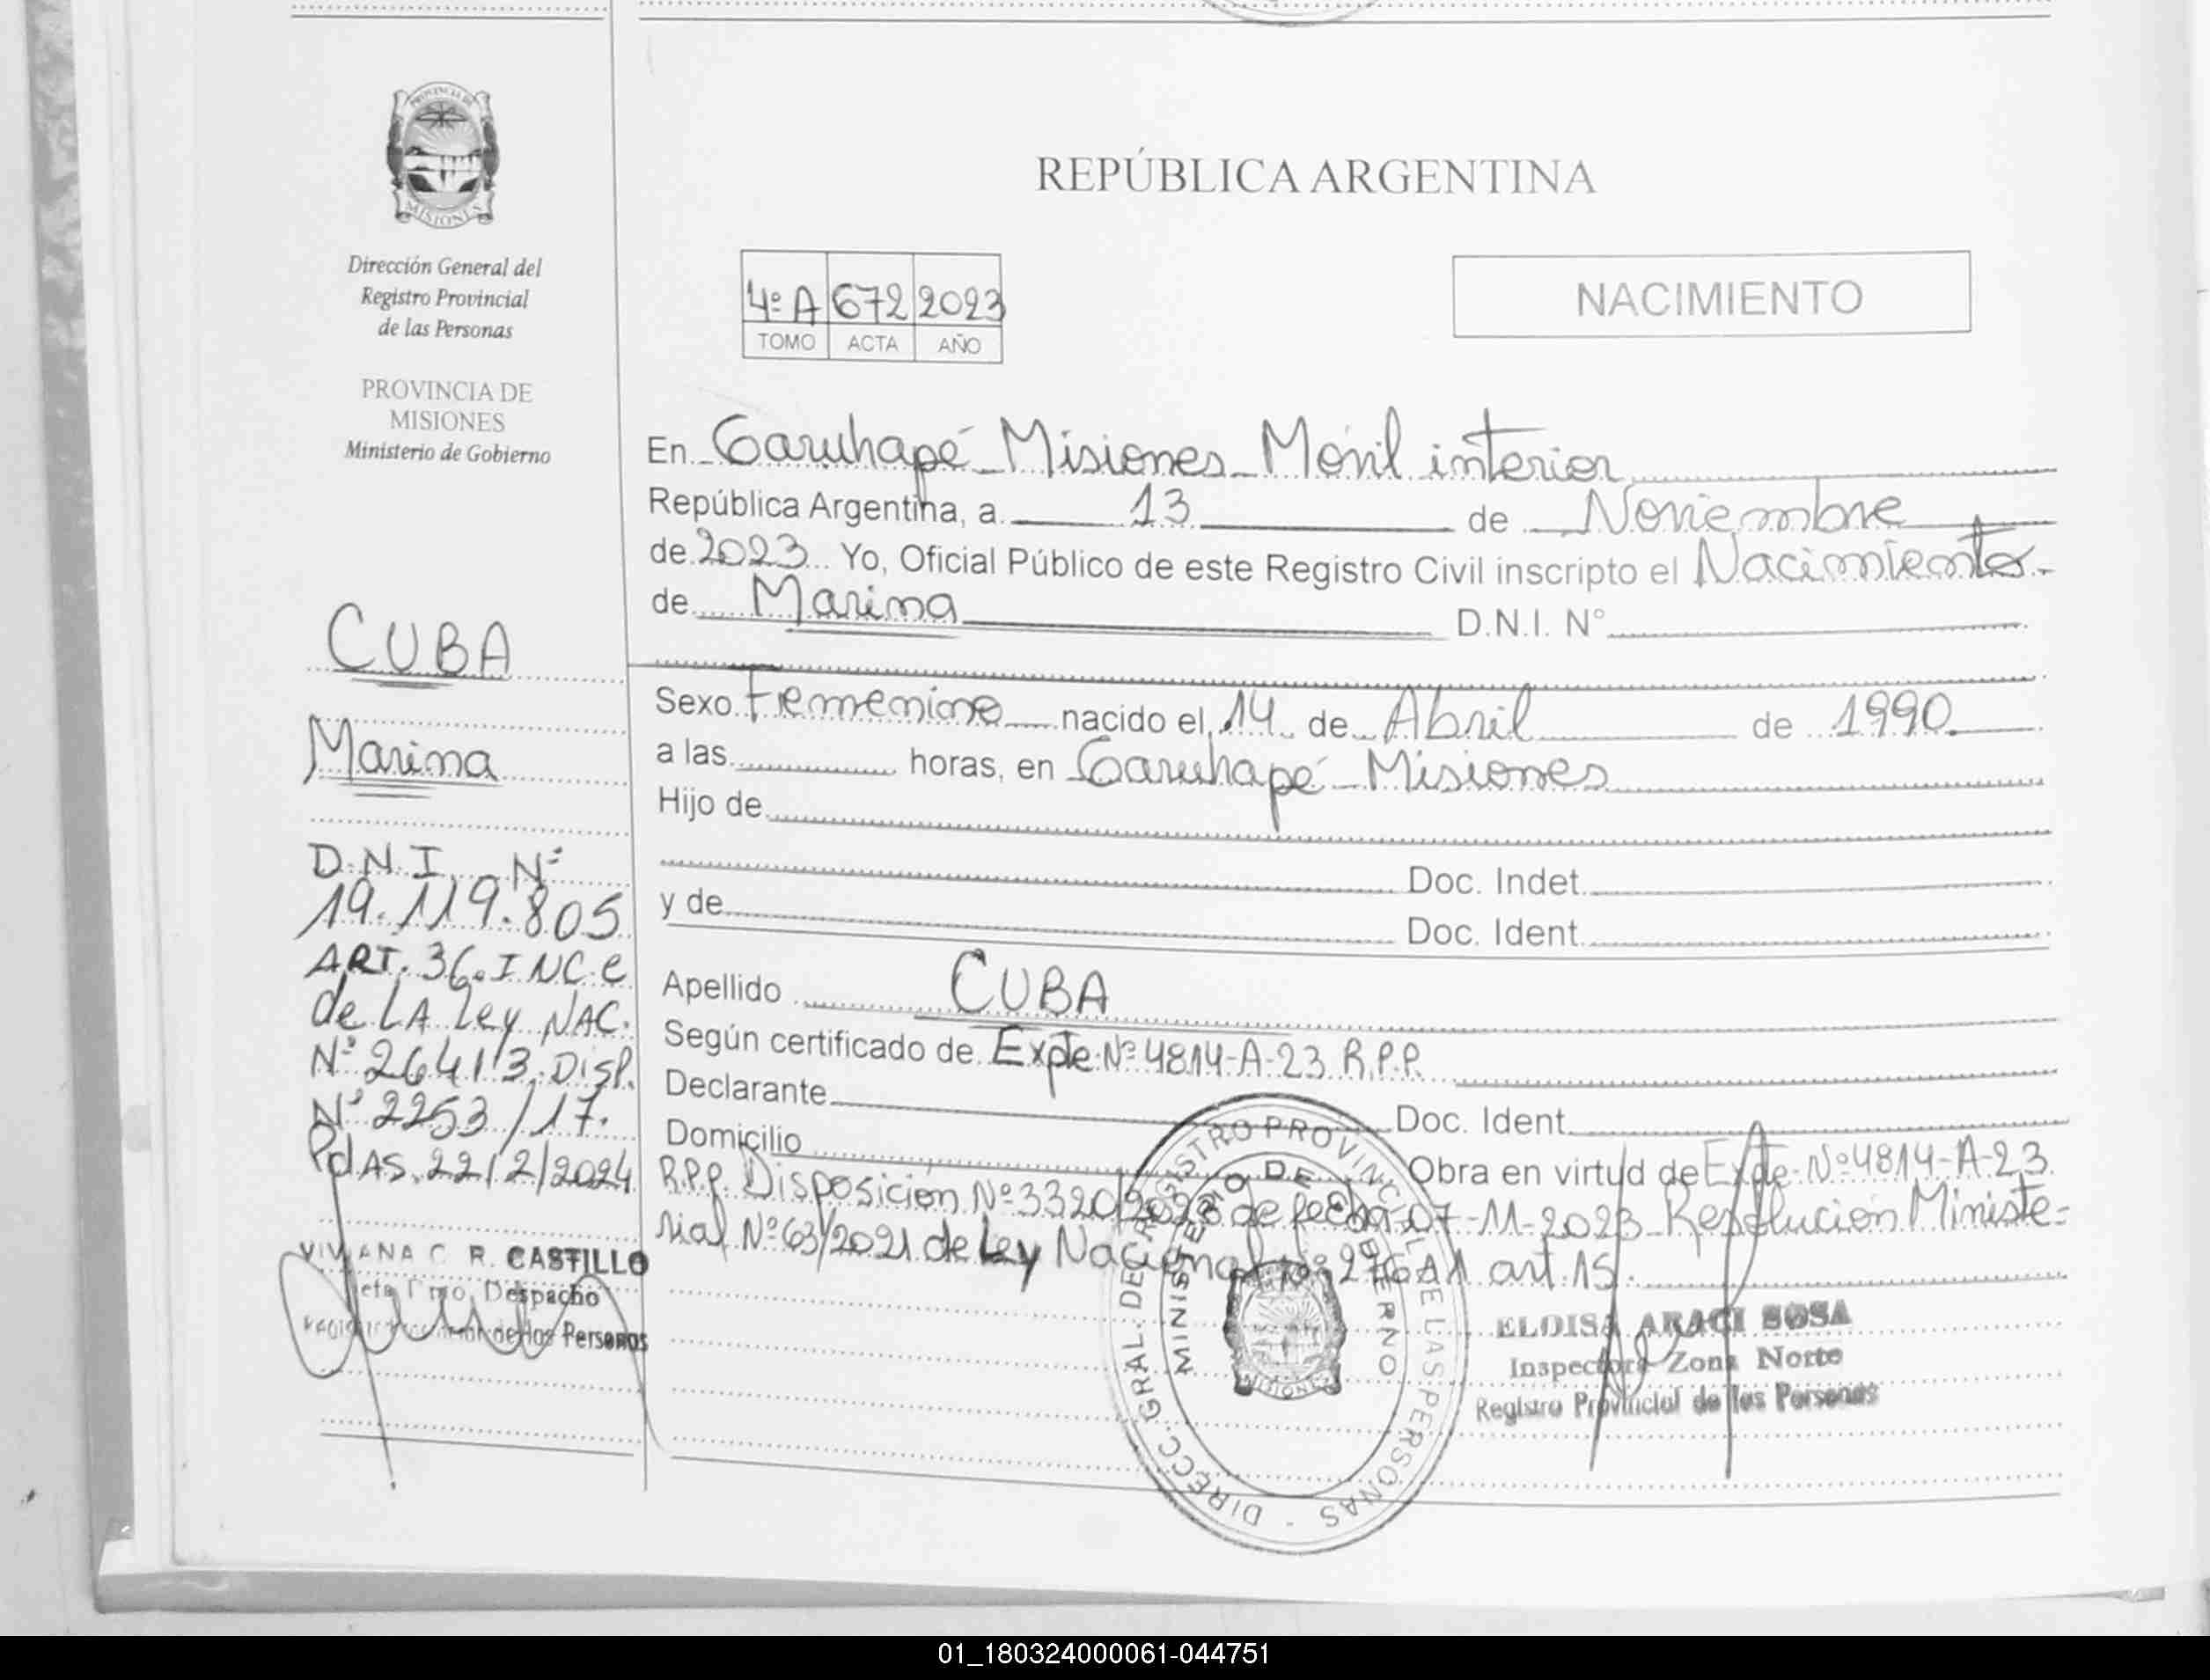 PROVINCIA DE
MISIONES
Dirección General del
Registro Provincial
de las Personas
PROVINCIA DE
MISIONES
Ministerio de Gobierno
CUBA
Marina
D.N.I. Nº
19.119.805
ART. 36. INC. e
de LA Ley NAC.
Nº 26413. DISP.
Nº 2253/17.
PdAS. 22/2/2024
VIVIANA C. R. CASTILLO
Despacho
de las Personas
REPÚBLICA ARGENTINA
4º A 672 2023
TOMO ACTA AÑO
NACIMIENTO
En Garuhapé - Misiones - Móvil interior
República Argentina, a 13 de Noviembre
de 2023 Yo, Oficial Público de este Registro Civil inscripto el Nacimiento
de Marina D.N.I. N°
Sexo Femenino nacido el 14 de Abril de 1990
a las horas, en Garuhapé - Misiones
Hijo de
Doc. Indet.
y de
Doc. Ident.
Apellido CUBA
Según certificado de Expte Nº 4814-A-23 R.P.P.
Declarante Doc. Ident.
Domicilio Obra en virtud de Expte. Nº 4814-A-23
R.P.P. Disposición Nº 3320/2023 de fecha 07-11-2023 - Resolución Ministe=
rial Nº 63/2021 de Ley Nacional Nº 27611 art. 15.
DIRECC. GRAL. DE REGISTRO PROVINCIAL DE LAS PERSONAS -
MINISTERIO DE GOBIERNO
MISIONES
ELOISA ARACI SOSA
Inspectora Zona Norte
Registro Provincial de las Personas
01_180324000061-044751